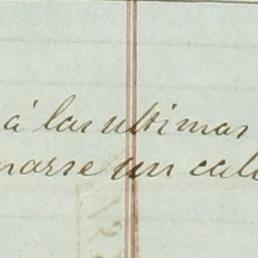 á las ultimas
narse un cal